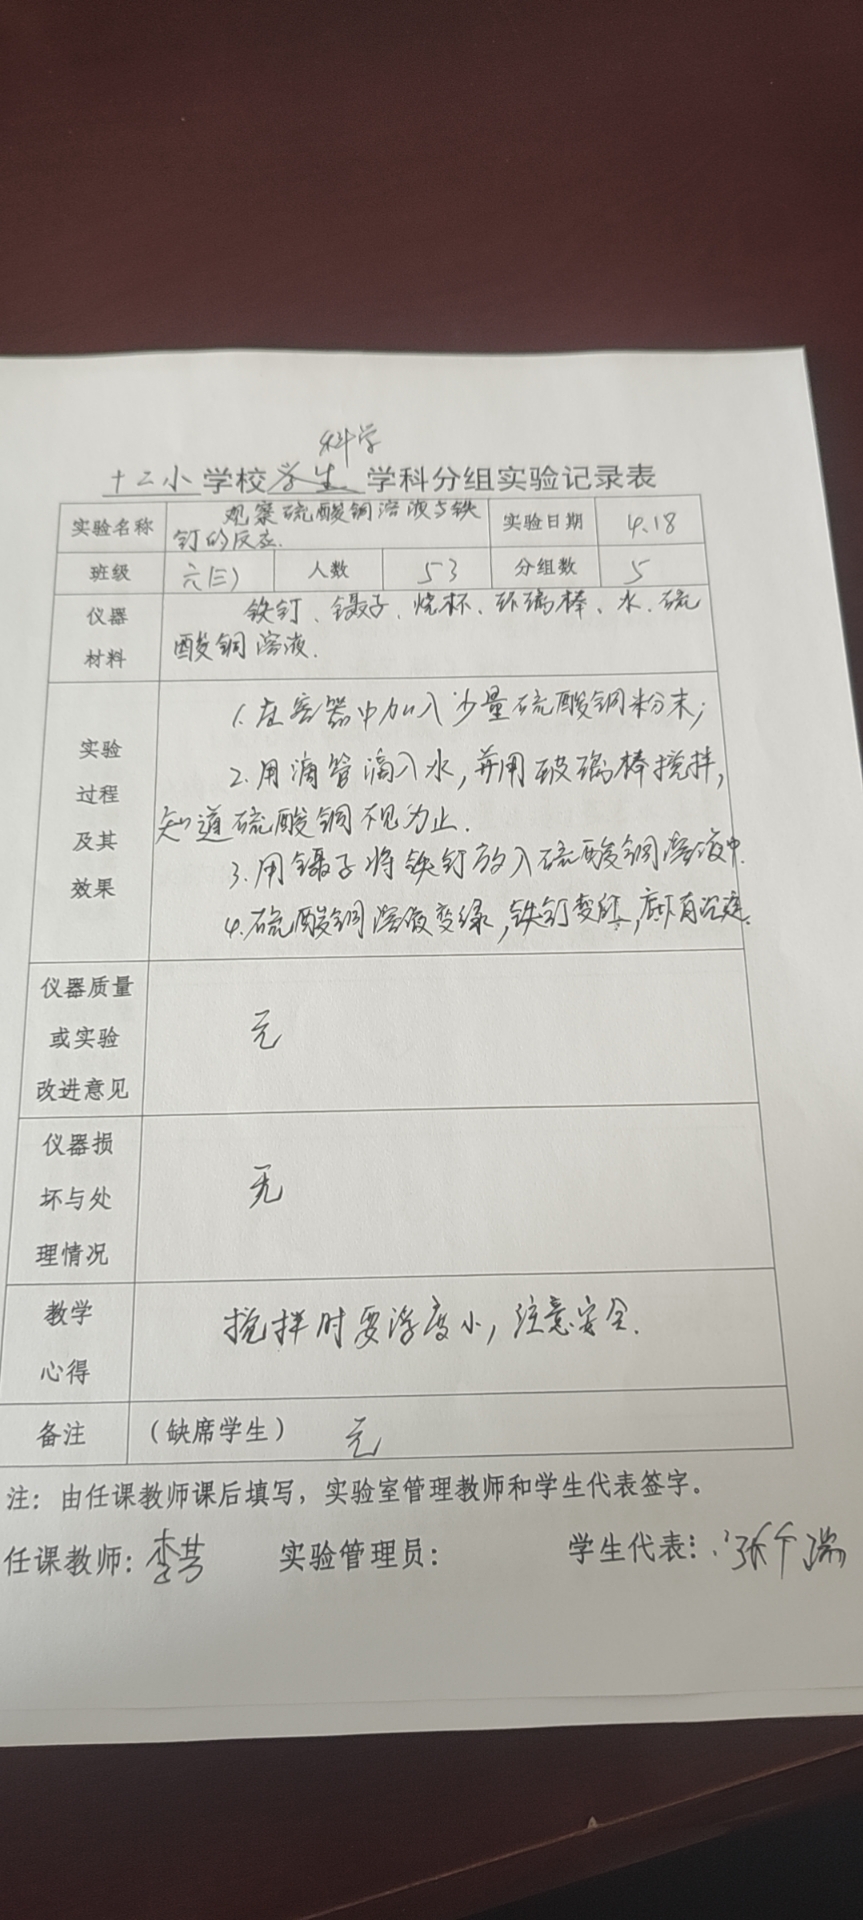 科学
十二小学校学生学科分组实验记录表
实验名称 观察硫酸铜溶液与铁钉的反应. 实验日期 4.18
班级 六(三) 人数 53 分组数 5
仪器材料 铁钉、镊子、烧杯、玻璃棒、水、硫
酸铜溶液.
实验过程及其效果
1.在容器中加入少量硫酸铜粉末;
2.用滴管滴入水,并用玻璃棒搅拌,
知道硫酸铜不见为止.
3.用镊子将铁钉放入硫酸铜溶液中.
4.硫酸铜溶液变绿,铁钉变红,底下有沉淀.
仪器质量或实验改进意见 无
仪器损坏与处理情况 无
教学心得 搅拌时要浮度小,注意安全.
备注 (缺席学生) 无
注：由任课教师课后填写，实验室管理教师和学生代表签字。
任课教师: 李 实验管理员： 学生代表: 张 瑞